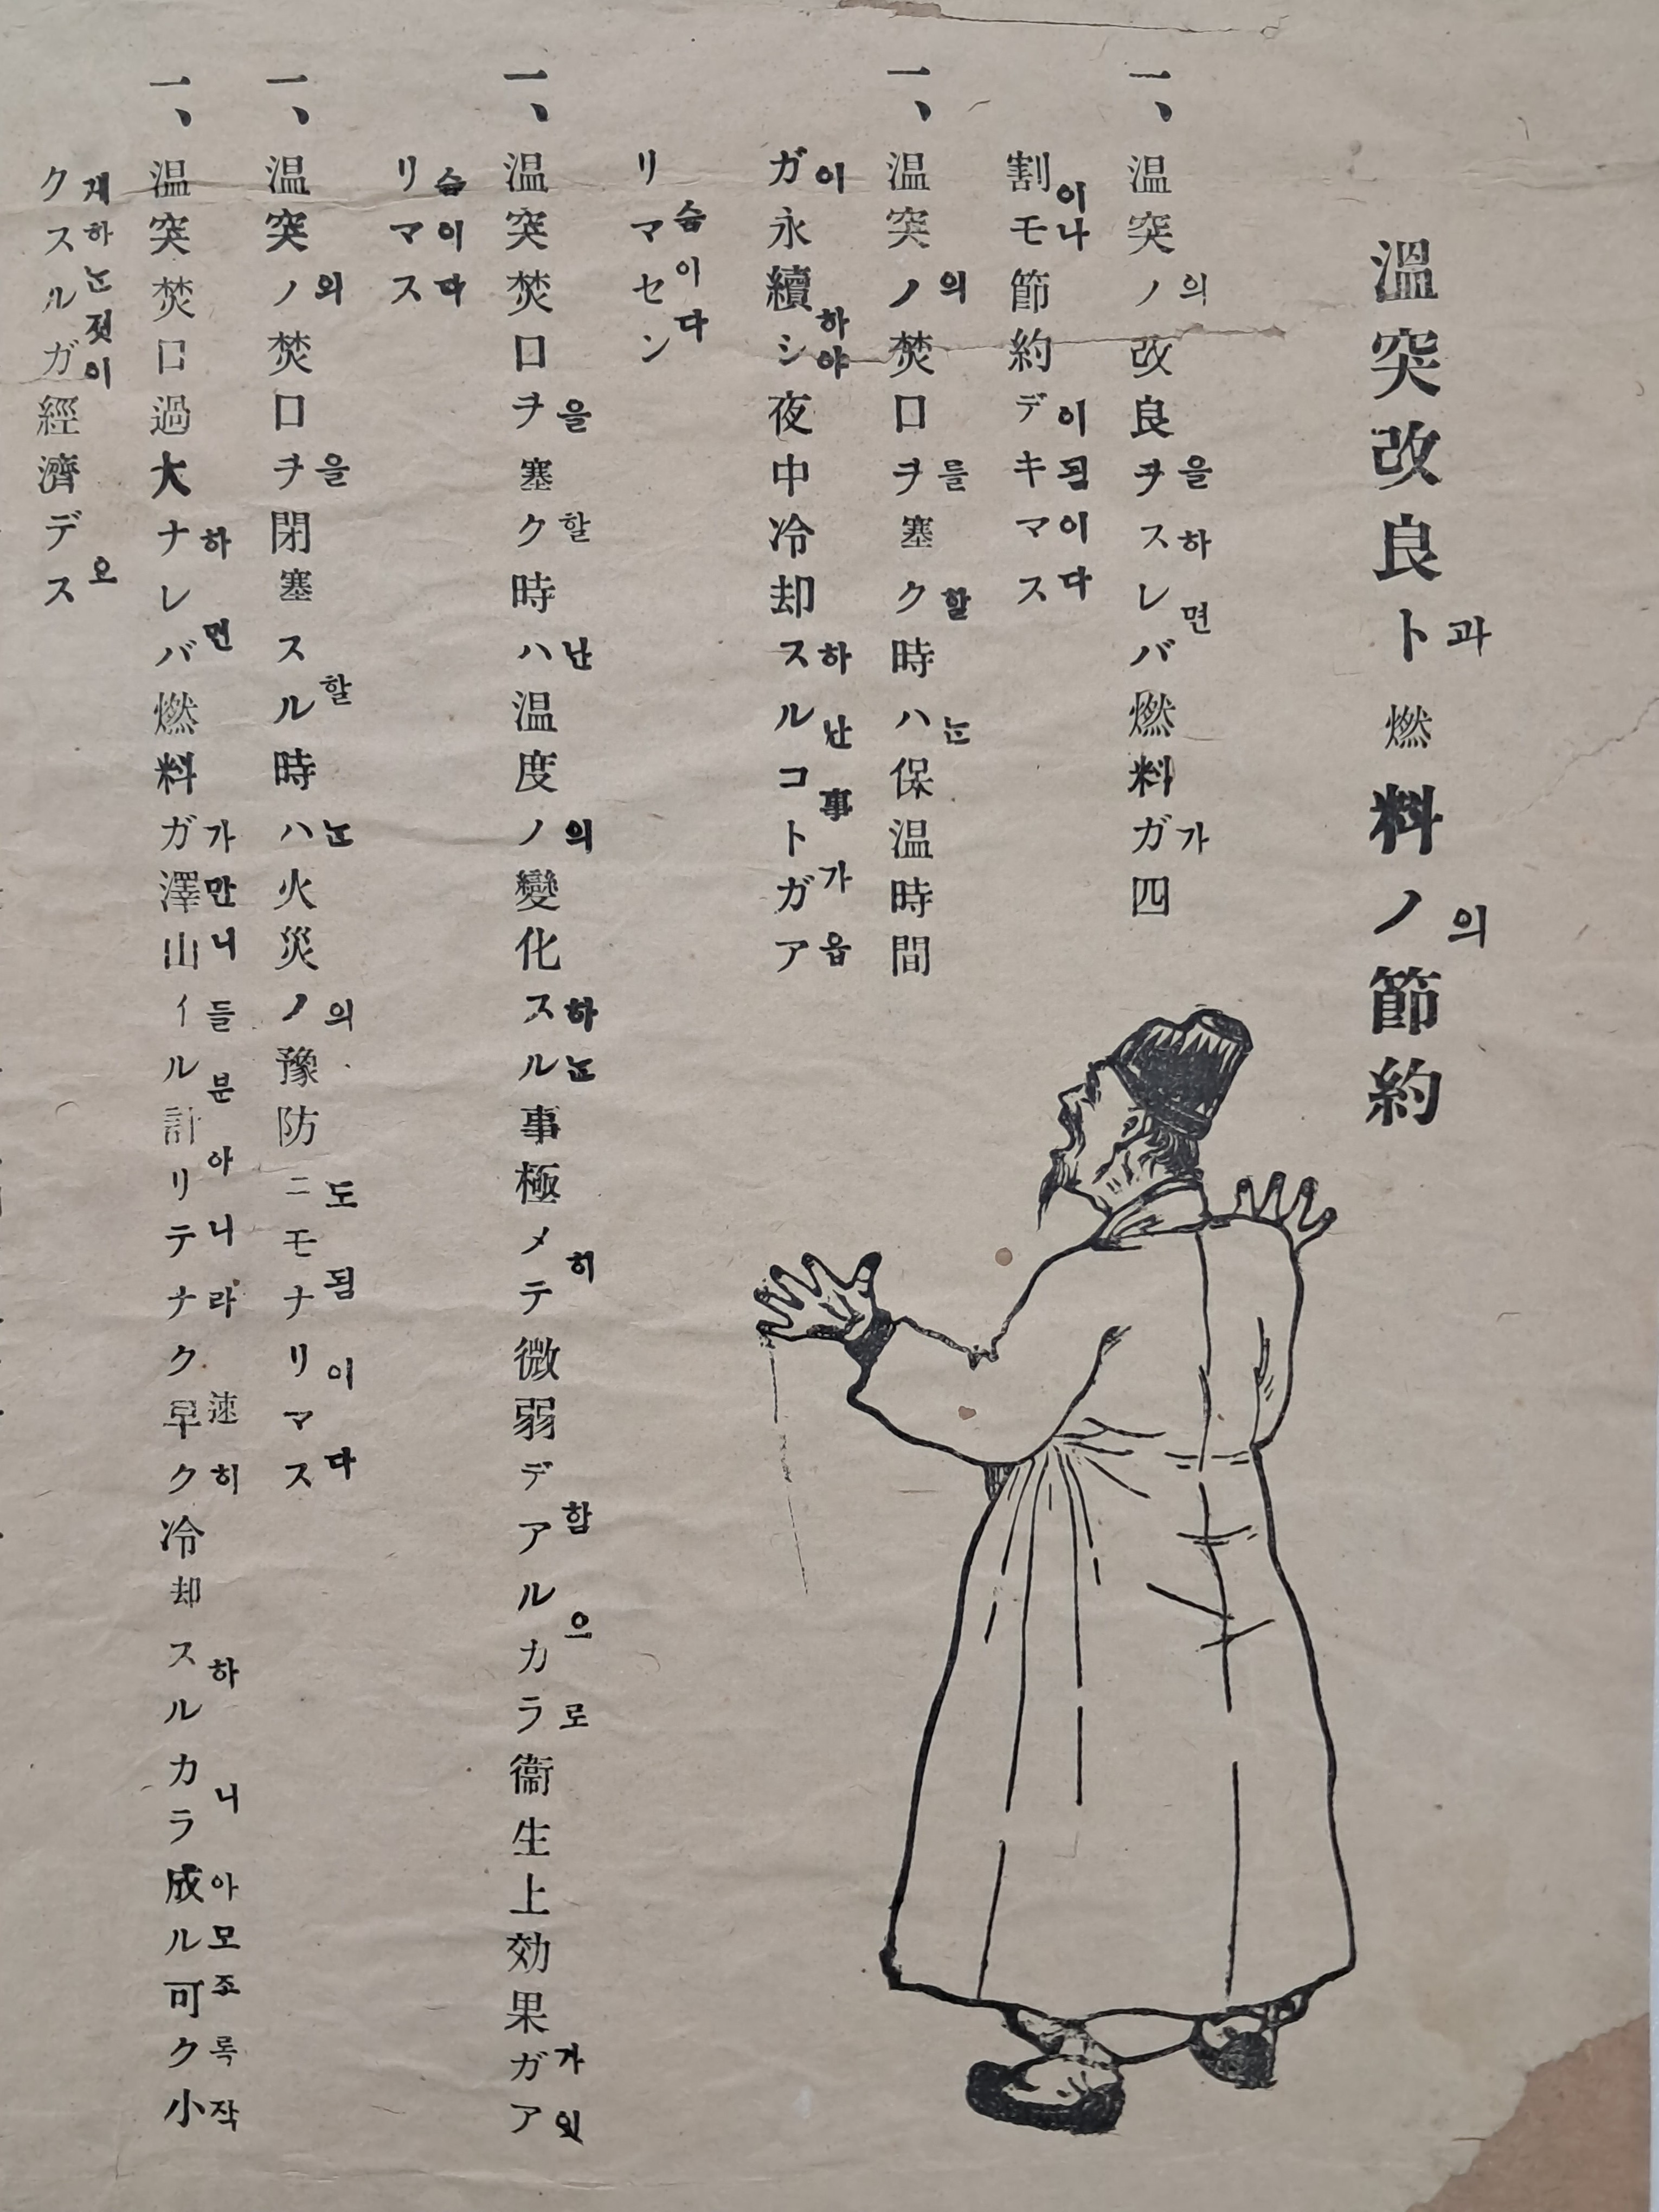 溫突改良ト燃料ノ節約
과 의
一、温突ノ改良ヲスレバ燃料ガ四
의 을 하면 가
割モ節約デキマス
이나 이됨이다
一、温突ノ焚口ヲ塞ク時ハ保温時間
의 를 할 는
ガ永續シ夜中冷却スルコトガア
이 하야 하난 事 가 읍
リマセン
슴이다
一、温突焚口ヲ塞ク時ハ温度ノ變化スル事極メテ微弱デアルカラ衞生上効果ガア
을 할 난 의 하는 히 함으로 가 잇
リマス
슴이다
一、温突ノ焚口ヲ閉塞スル時ハ火災ノ豫防ニモナリマス
의 을 할 는 의 도 됨이다
一、温突焚口過大ナレバ燃料ガ澤山イル計リテナク早ク冷却スルカラ成ル可ク小
하면 가 만니 들 분 아니라 速히 하니 아모죠록 작
クスルガ經濟デス
게하는젓이 오